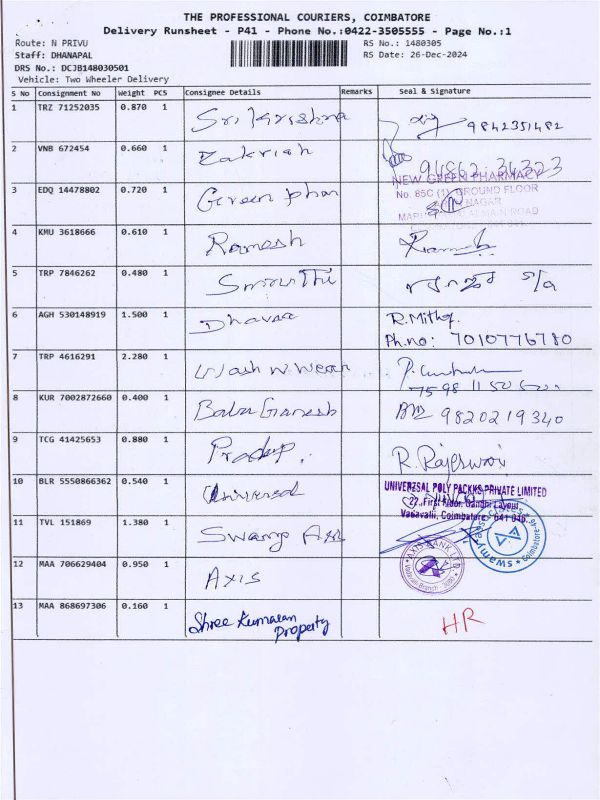 THE PROFESSIONAL COURIERS, COIMBATORE
Delivery Runsheet - P41 - Phone No.:0422-3505555 - Page No.:1
Route: N PRIVU
RS No.: 1480305
Staff: DHANAPAL
RS Date: 26-Dec-2024
DRS No.: DCJB148030501
Vehicle: Two Wheeler Delivery
S No Consignment No Weight PCS Consignee Details Remarks Seal & Signature
1 TRZ 71252035 0.870 1 Sri Krishna 9842351482
2 VNB 672454 0.660 1 Zakriah
NEW GREEN PHARMACY
3 EDQ 14478802 0.720 1 Green phar
No. 85C (1), GROUND FLOOR
NAGAR
MAIN ROAD
4 KMU 3618666 0.610 1 Ramesh
5 TRP 7846262 0.480 1 S/a
6 AGH 530148919 1.500 1 R.Mitha
Ph.no: 7010776780
7 TRP 4616291 2.280 1 Wash n Wear
8 KUR 7002872660 0.400 1 Babu Ganesh 9820219340
9 TCG 41425653 0.880 1 Pradeep R. Rajeswari
10 BLR 5550866362 0.540 1 Universal
UNIVERSAL POLY PACKKS PRIVATE LIMITED
22, First Floor, Gandhi Layout
Vadavalli, Coimbatore- 641 046.
11 TVL 151869 1.380 1 Swamy Axis
12 MAA 706629404 0.950 1 AXIS
AXIS BANK LTD
13 MAA 868697306 0.160 1 Shree Kumaran
Property
HR